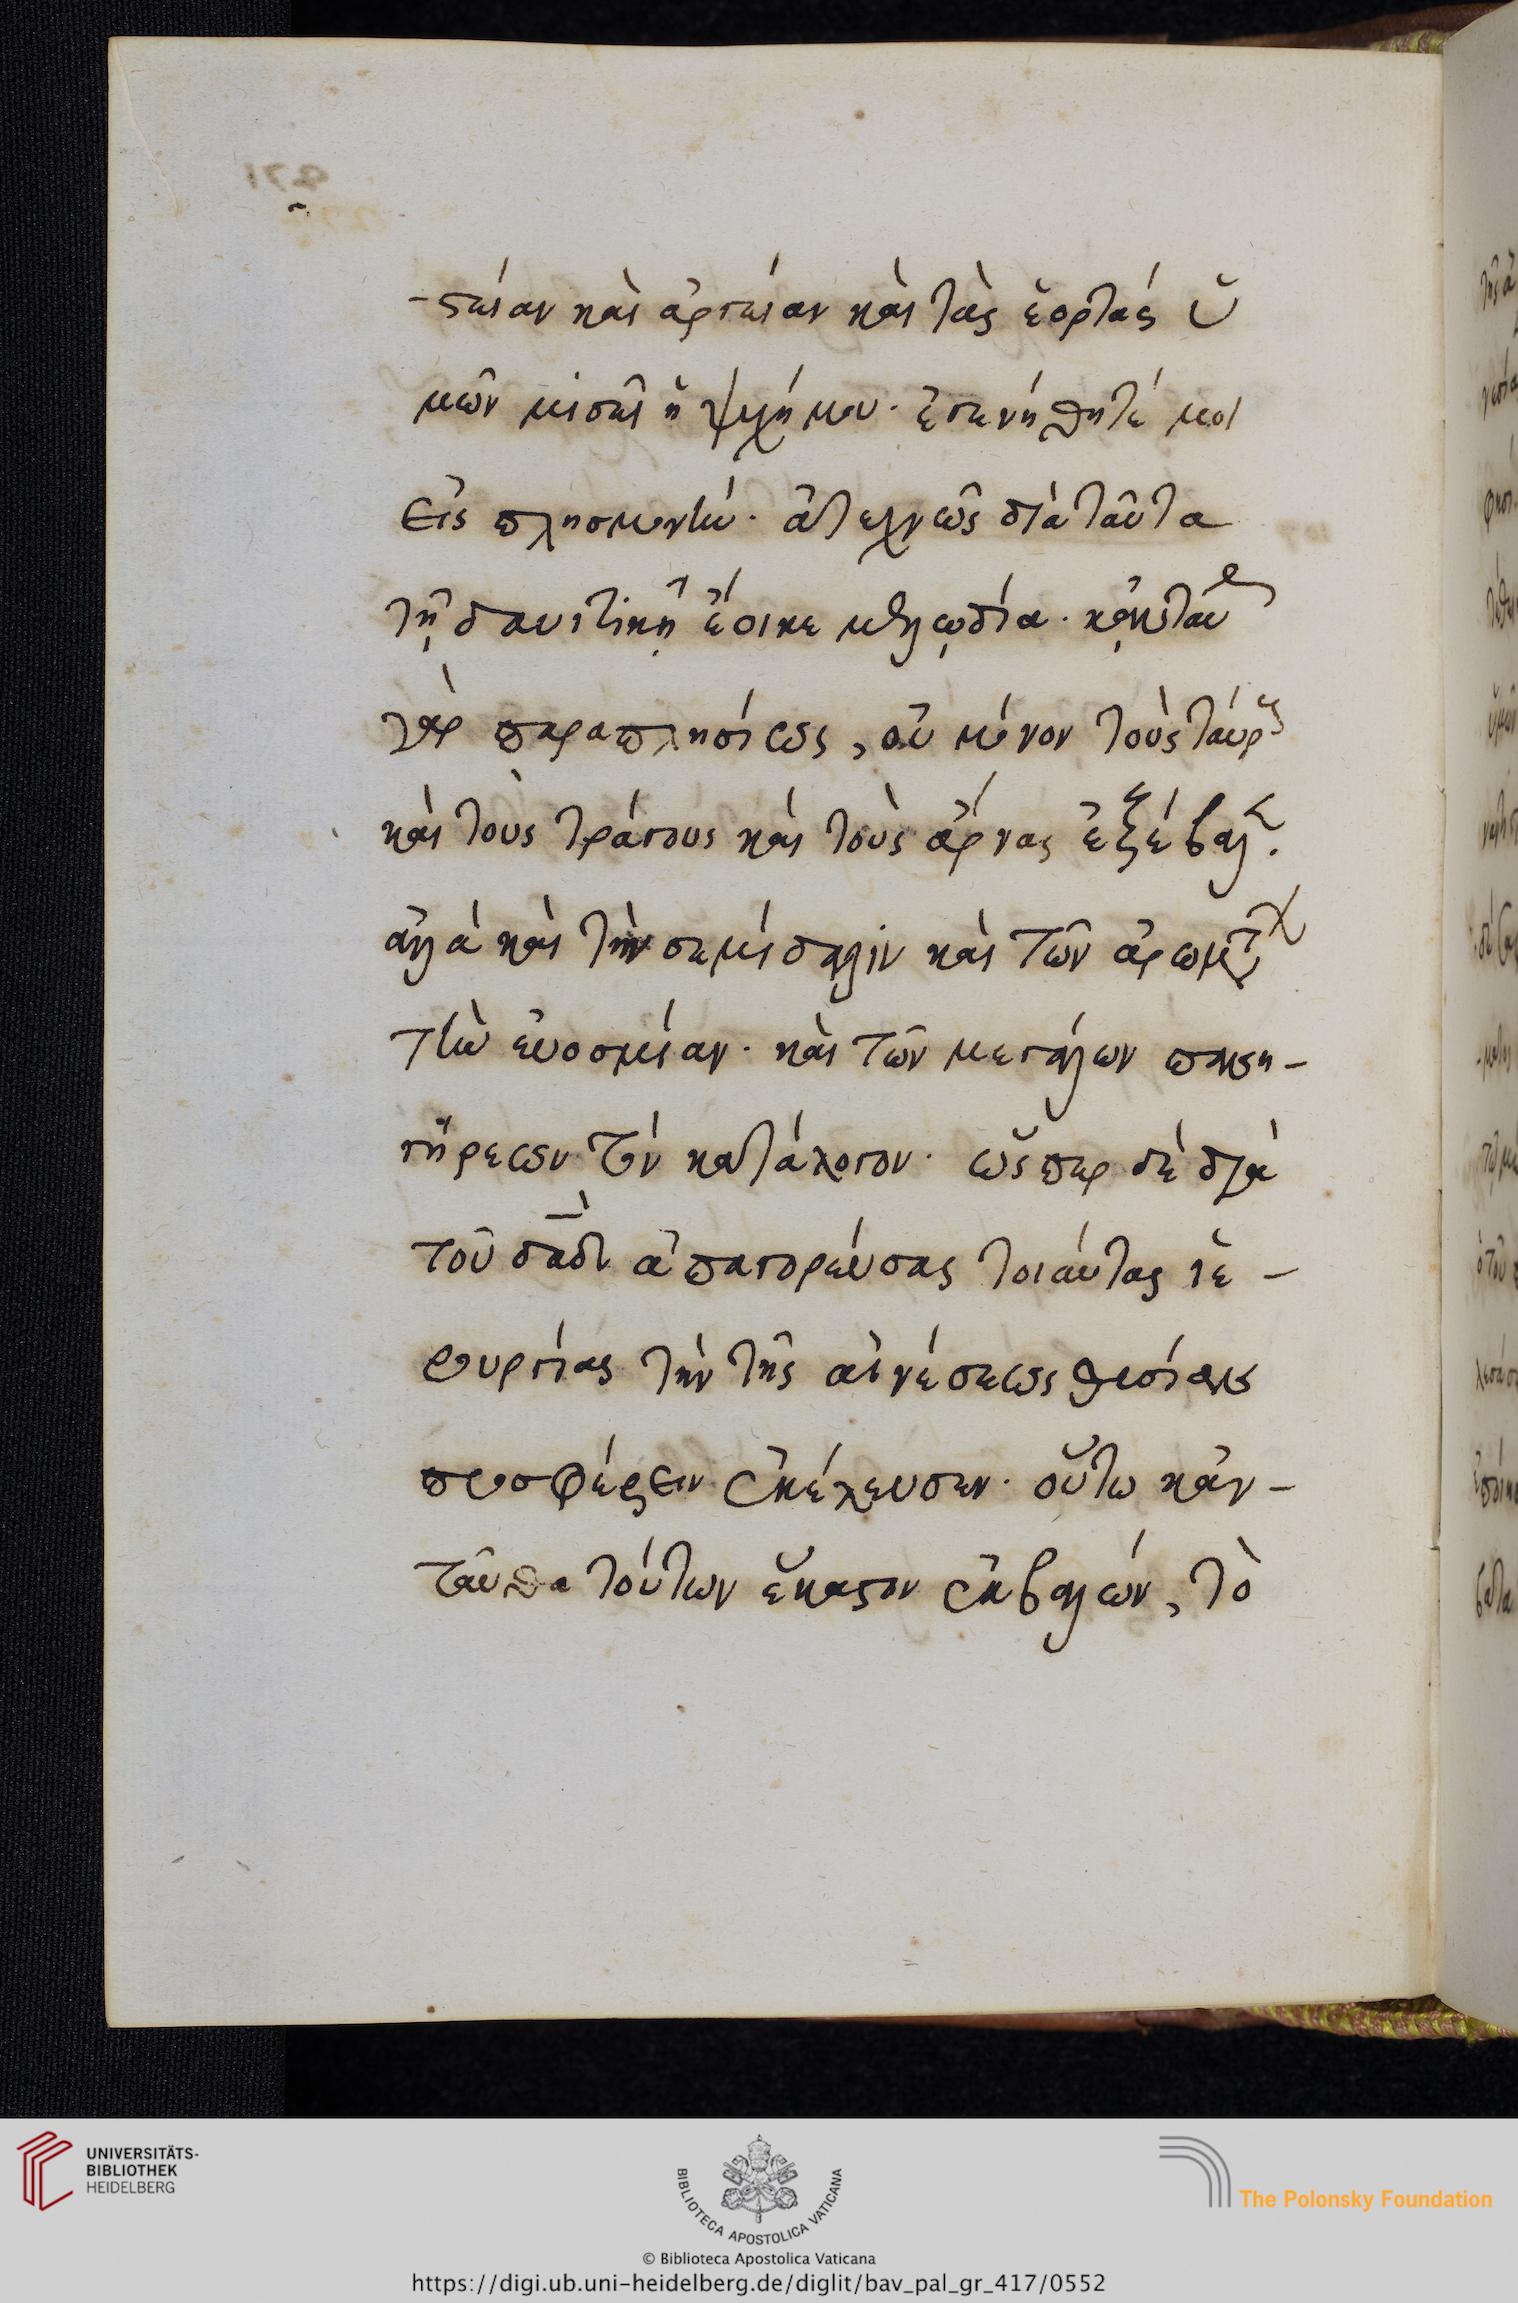 -στείαν καὶ ἀργείαν καὶ τὰς ἑορτὰς ὑ
μῶν μισεῖ ἡ ψυχή μου· ἐγενήθητέ μοι
εἰς πλησμονήν· ἀτεχνῶς διὰ ταῦτα
τῇ δαυιτικῇ ἔοικε μελῳδία· κἀνταῦθ
γὰρ παραπλησίως, οὐ μόνον τοὺς ταύρους
καὶ τοὺς τράγους καὶ τοὺς ἄρνας ἐξέβαλ·
ἀλλὰ καὶ τὴν σεμίδαλιν καὶ τῶν ἀρωμάτων
τὴν εὐοσμίαν· καὶ τῶν μεγάλων πανη-
γύρεων τὸν κατάλογον· ὥσπερ δὲ διὰ
τοῦ δαδ ἀπαγορεύσας τοιαύτας ἱε-
ρουργίας τὴν τῆς αἰνέσεως θυσίαν
προσφέρειν ἐκέλευσεν· οὕτω κἀν-
ταῦθα τούτων ἕκαστον ἐκβαλών, τὸ
271
UNIVERSITÄTS-
BIBLIOTHEK
HEIDELBERG
BIBLIOTECA APOSTOLICA VATICANA
The Polonsky Foundation
© Biblioteca Apostolica Vaticana
https://digi.ub.uni-heidelberg.de/diglit/bav_pal_gr_417/0552